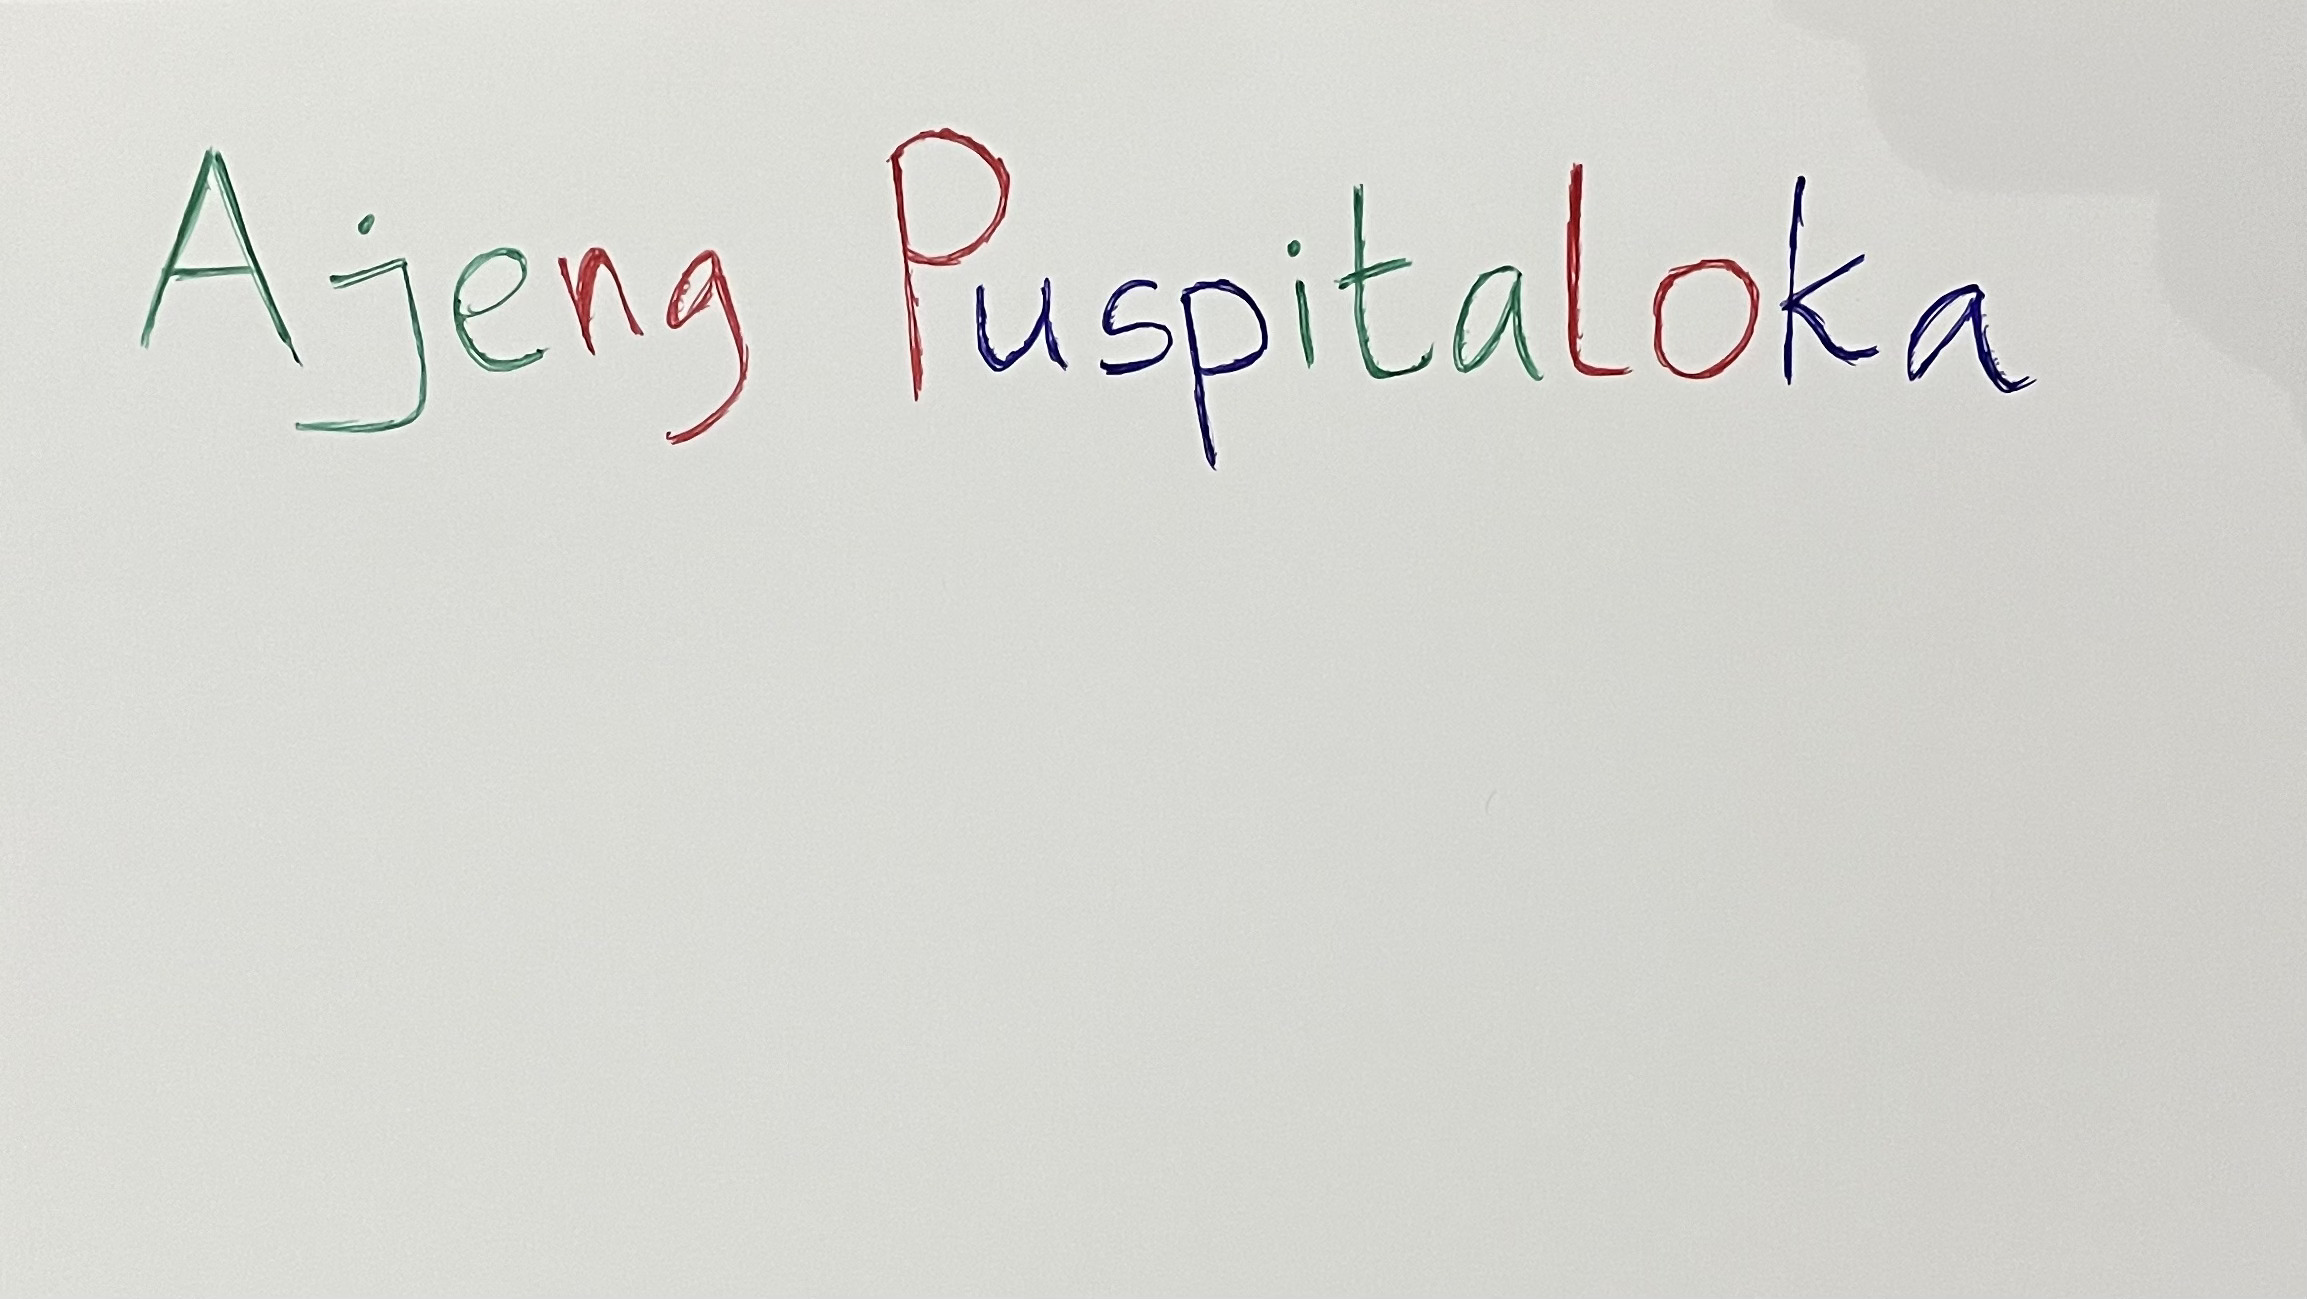 Ajeng Puspitaloka